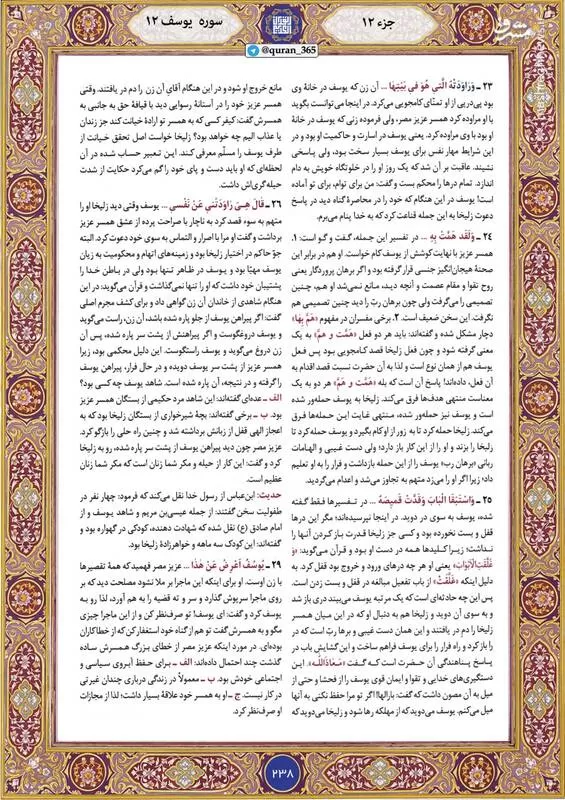 جزء ۱۲
سوره یوسف ۱۲
@quran_365
مشرق
۲۳ ـ وَرَاوَدَتْهُ الَّتي هُوَ في بَيْتِهَا ... آن زن که یوسف در خانهٔ وی
بود پی‌درپی از او تمنّای کامجویی می‌کرد. در اینجا می‌توانست بگوید
یا او مراوده کرد همسر عزیز مصر، ولی فرموده زنی که یوسف در خانهٔ
او بود با وی مراوده کرد. یعنی یوسف در اسارت و حاکمیت او بود و در
این شرایط مهار نفس برای یوسف بسیار سخت بود، ولی پاسخی
نشنید. عاقبت بر آن شد که یک روز او را در خلوتگاه خویش به دام
اندازد. تمام درها را محکم بست و گفت: من برای توام، برای تو آماده
است! یوسف در این هنگام که خود را در محاصرهٔ گناه دید در پاسخ
دعوت زلیخا به این جمله قناعت کرد که به خدا پناه می‌برم.
۲۴ ـ وَلَقَد هَمَّتْ بِهِ ... در تفسیر این جمله، گفت و گو است: ۱.
همسر عزیز با نهایت کوشش از یوسف کام خواست. او هم در برابر این
صحنهٔ هیجان‌انگیز جنسی قرار گرفته بود و اگر برهان پروردگار یعنی
روح تقوا و مقام عصمت و آنچه دید، مانع نمی‌شد او هم، چنین
تصمیمی را می‌گرفت ولی چون برهان ربّ را دید چنین تصمیمی هم
نگرفت. این سخن ضعیف است. ۲. برخی مفسران در مفهوم «هَمَّ بِهَا»
دچار مشکل شده و گفته‌اند: باید هر دو فعل «هَمَّت و هَمَّ» به یک
معنی گرفته شود و چون فعل زلیخا قصد کامجویی بود پس فعل
یوسف هم از همان نوع است و لذا به آن حضرت نسبت قصد اقدام به
آن فعل، داده‌اند؛ پاسخ آن است که بله «هَمَّت و هَمَّ» هر دو به یک
معناست منتهی هدف‌ها فرق می‌کند. زلیخا به یوسف حمله‌ور شده
است و یوسف نیز حمله‌ور شده، منتهی غایت این حمله‌ها فرق
می‌کند. زلیخا حمله کرد تا به زور از او کام بگیرد و یوسف حمله کرد تا
زلیخا را بزند و او را از این کار باز دارد؛ ولی دست غیبی و الهامات
ربانی «برهان رب» یوسف را از این حمله بازداشت و فرار را به او تعلیم
داد؛ زیرا اگر او را می‌زد متهم به تجاوز می‌شد و اعدام می‌گردید.
۲۵ ـ وَاسْتَبَقَا الْبَابَ وَقَدَّتْ قَميصَهُ ... در تفسیرها فقط گفته
شده، یوسف به سوی در دوید. در اینجا نپرسیده‌اند؛ مگر این درها
قفل و بست نخورده بود و کسی جز زلیخا قدرت باز کردن آنها را
نداشت؛ زیرا کلیدها همه در دست او بود و قرآن می‌گوید: «وَ
غَلَّقَتِ الْأَبْوَابَ» یعنی او هر چه درهای ورود و خروج بود قفل کرد. به
دلیل اینکه «غَلَّقَتْ» از باب تفعیل مبالغه در قفل و بست زدن است.
پس این چه حادثه‌ای است که یک مرتبه یوسف می‌بیند دری باز شد
و به سوی آن دوید و زلیخا هم به دنبال او که در این میان همسر
زلیخا را دم در یافتند و این همان دست غیبی و برهان ربّ است که در
را باز کرد و راه فرار را برای یوسف فراهم ساخت و این گشایش باب در
پاسخ پناهندگی آن حضرت است که گفت «مَعَاذَ اللَّه». این
دستگیری‌های خدایی و تقوا و ایمان قوی یوسف را از فحشا و حتی از
میل به آن مصون داشت که گفت: بارالها! اگر تو مرا حفظ نکنی به آنها
میل می‌کنم. یوسف می‌دوید که از مهلکه رها شود و زلیخا می‌دوید که
مانع خروج او شود و در این هنگام آقای آن زن را دم در یافتند. وقتی
همسر عزیز خود را در آستانهٔ رسوایی دید با قیافهٔ حق به جانبی به
همسرش گفت: کیفر کسی که به همسر تو ارادهٔ خیانت کند جز زندان
یا عذاب الیم چه خواهد بود؟ زلیخا خواست اصل تحقق خیانت از
طرف یوسف را مسلّم معرفی کند. این تعبیر حساب شده در آن
لحظه‌ای که او باید دست و پای خود را گم می‌کرد حکایت از شدت
حیله‌گری‌اش داشت.
۲۶ ـ قَالَ هِيَ رَاوَدَتْني عَنْ نَفْسي ... یوسف وقتی دید زلیخا او را
متهم به سوء قصد کرد به ناچار با صراحت پرده از عشق همسر عزیز
برداشت و گفت او مرا با اصرار و التماس به سوی خود دعوت کرد. البته
جوّ حاکم در اختیار زلیخا بود و زمینه‌های اتهام و محکومیت به زیان
یوسف مهیّا بود و یوسف در ظاهر تنها بود ولی در باطن خدا را
پشتیبان خود داشت که او را تنها نمی‌گذاشت و قرآن می‌گوید: در این
هنگام شاهدی از خاندان آن زن گواهی داد و برای کشف مجرم اصلی
گفت: اگر پیراهن یوسف از جلو پاره شده باشد، آن زن، راست می‌گوید
و یوسف دروغگوست و اگر پیراهنش از پشت سر پاره شده، پس آن
زن دروغ می‌گوید و یوسف راستگوست. این دلیل محکمی بود، زیرا
همسر عزیز از پشت سر یوسف دویده و در حال فرار، پیراهن یوسف
را گرفته و در نتیجه، آن پاره شده است. شاهد یوسف چه کسی بود؟
الف ـ عده‌ای گفته‌اند: این شاهد مرد حکیمی از بستگان همسر عزیز
بود. ب ـ برخی گفته‌اند: بچهٔ شیرخواری از بستگان زلیخا بود که به
اعجاز الهی قفل از زبانش برداشته شد و چنین راه حلی را بازگو کرد.
عزیز مصر چون دید پیراهن یوسف از پشت سر پاره شده، رو به زلیخا
کرد و گفت: این کار از حیله و مکر شما زنان است که مکر شما زنان
عظیم است.
حدیث: ابن‌عباس از رسول خدا نقل می‌کند که فرمود: چهار نفر در
طفولیت سخن گفتند: از جمله عیسی‌بن مریم و شاهد یوسف و از
امام صادق (ع) نقل شده که شهادت دهنده، کودکی در گهواره بود و
گفته‌اند: این کودک سه ماهه و خواهرزادهٔ زلیخا بود.
۲۹ ـ يُوسُفُ أَعْرِضْ عَنْ هٰذَا ... عزیز مصر فهمید که همهٔ تقصیرها
با زن اوست. او برای اینکه این ماجرا بر ملا نشود مصلحت دید که بر
روی ماجرا سرپوش گذارد و سر و ته قضیه را به هم آورد، لذا رو به
یوسف کرد و گفت: ای یوسف! تو صرف‌نظر کن و از این ماجرا چیزی
مگو و به همسرش گفت تو هم از گناه خود استغفار کن که از خطاکاران
بوده‌ای. در مورد اینکه عزیز مصر از خطای بزرگ همسرش ساده
گذشت چند احتمال داده‌اند: الف ـ برای حفظ آبروی سیاسی و
اجتماعی خودش بود. ب ـ معمولاً در زندگی درباری چندان غیرتی
در کار نیست. ج ـ او به همسر خود علاقهٔ بسیار داشت؛ لذا از مجازات
او صرف‌نظر کرد.
۲۳۸